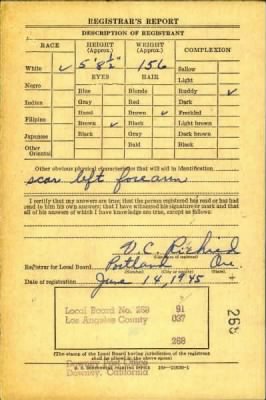 REGISTRAR'S REPORT
DESCRIPTION OF REGISTRANT
RACE HEIGHT (Approx.) WEIGHT (Approx.) COMPLEXION
White ✓ 5' 8½" 156 Sallow
EYES HAIR Light
Negro Blue Blonde Ruddy ✓
Indian Gray Red Dark
Hazel Brown ✓ Freckled
Filipino Brown ✓ Black Light brown
Japanese Black Gray Dark brown
Other Oriental Bald Black
Other obvious physical characteristics that will aid in identification
scar left forearm
I certify that my answers are true; that the person registered has read or has had
read to him his own answers; that I have witnessed his signature or mark and that
all of his answers of which I have knowledge are true, except as follows:
D. C. Richard
Registrar for Local Board Portland Ore
(Number) (City or county) (State)
Date of registration June 14, 1945
Local Board No. 268 91
Los Angeles County 037
268
268
(The stamp of the Local Board having jurisdiction of the registrant
shall be placed in the above space.)
Downey Post Office
U. S. GOVERNMENT PRINTING OFFICE
Downey, California